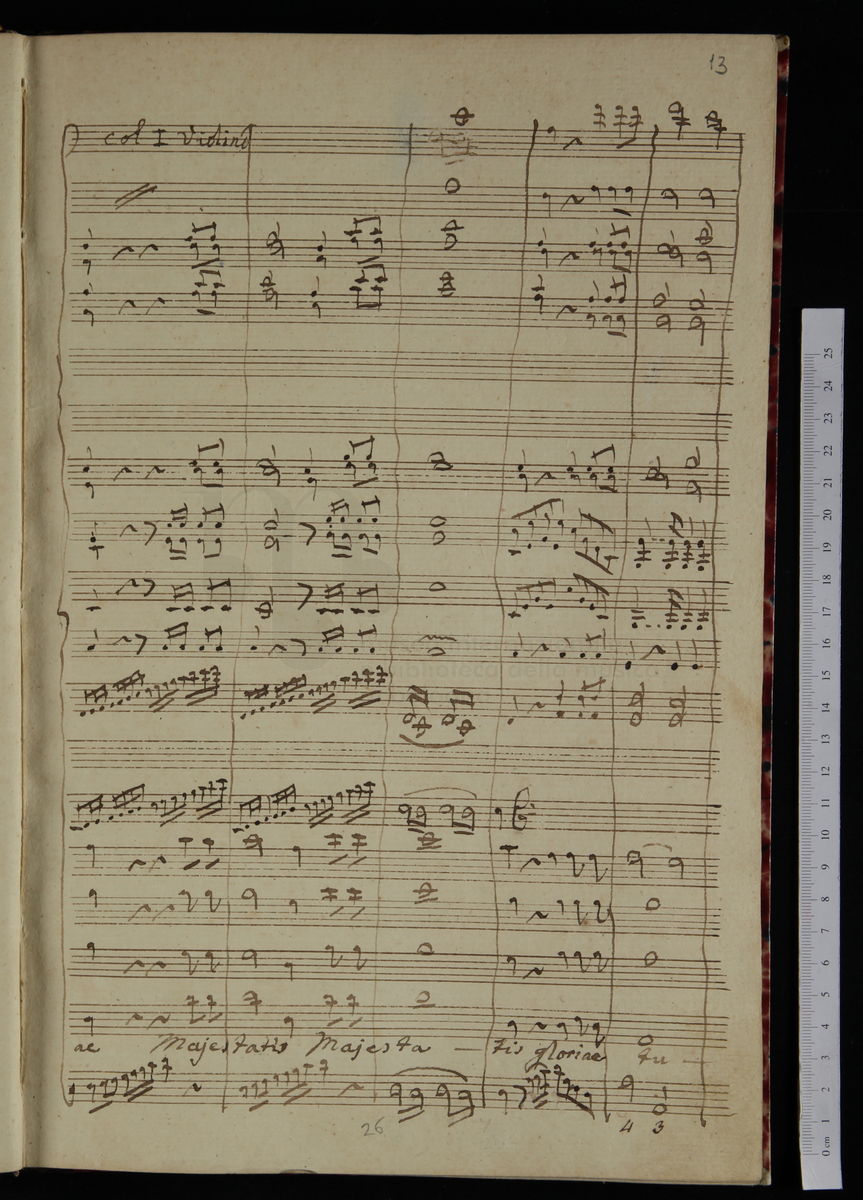 13
col I Violino
ae Majestatis Majesta – tis gloriae tu –
4 3
26
25
24
23
22
21
20
19
18
17
16
15
14
13
12
11
10
9
8
7
6
5
4
3
2
1
0 cm